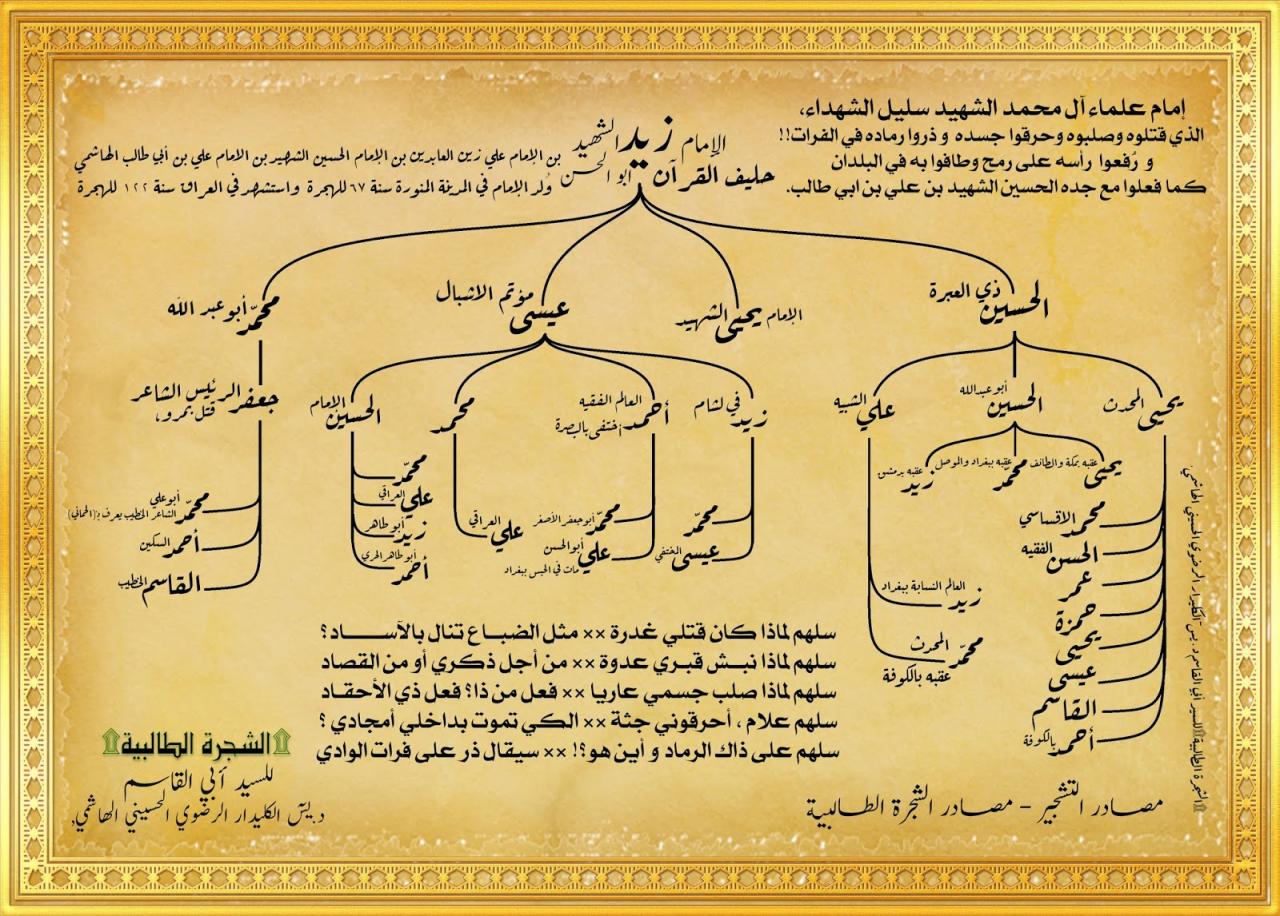 إمام علماء آل محمد الشهيد سليل الشهداء،
الذي قتلوه وصلبوه وحرقوا جسده و ذروا رماده في الفرات!!
و رُفعوا رأسه على رمح وطافوا به في البلدان
كما فعلوا مع جده الحسين الشهيد بن علي بن ابي طالب.
الإمام زيد الشهيد
حليف القرآن أبو الحسن
بن الإمام علي زين العابدين بن الإمام الحسين الشهيد بن الامام علي بن أبي طالب الهاشمي
وُلد الإمام في المدينة المنورة سنة ٦٧ للهجرة واستشهد في العراق سنة ١٢٢ للهجرة
الحسين ذي العبرة
الإمام يحيى الشهيد
عيسى مؤتم الاشبال
محمّد أبو عبد الله
يحيى المحدث
الحسين أبو عبدالله
علي الشبيه
زيد في لشام
أحمد العالم الفقيه
أختفى بالبصرة
محمد
الحسين الإمام
جعفر الرئيس الشاعر
قتل بمرو،
يحيى عقبه بمكة والطائف
محمّد عقبه ببغداد والموصل
زيد عقبه بدمشق
محمد الاقساسي
الحسن الفقيه
عمر
حمزة
يحيى
عيسى
القاسم
أحمد بالكوفة
زيد العالم النسابة ببغداد
محمّد المحدث
عقبه بالكوفة
محمّد
عيسى
محمّد أبو جعفر الأصغر
علي أبو الحسن
مات في الحبس ببغداد
علي العراقي
محمّد
علي العراقي
زيد أبو طاهر
أحمد أبو طاهر
محمّد أبو علي
الشاعر الخطيب يعرف بـ(الحماني)
أحمد السكين
القاسم الخطيب
سلهم لماذا كان قتلي غدرة ×× مثل الضباع تنال بالآساد؟
سلهم لماذا نبش قبري عدوة ×× من أجل ذكري أو من القصاد
سلهم لماذا صلب جسمي عاريا ×× فعل من ذا؟ فعل ذي الأحقاد
سلهم علام ، أحرقوني جثة ×× الكي تموت بداخلي أمجادي ؟
سلهم على ذاك الرماد و أين هو؟! ×× سيقال ذر على فرات الوادي
الشجرة الطالبية
للسيد أبي القاسم
د.يس الكليدار الرضوي الحسيني الهاشمي،
مصادر التشجير - مصادر الشجرة الطالبية
الشجرة الطالبية للسيد أبي القاسم د.يس الكليدار الرضوي الحسيني الهاشمي،